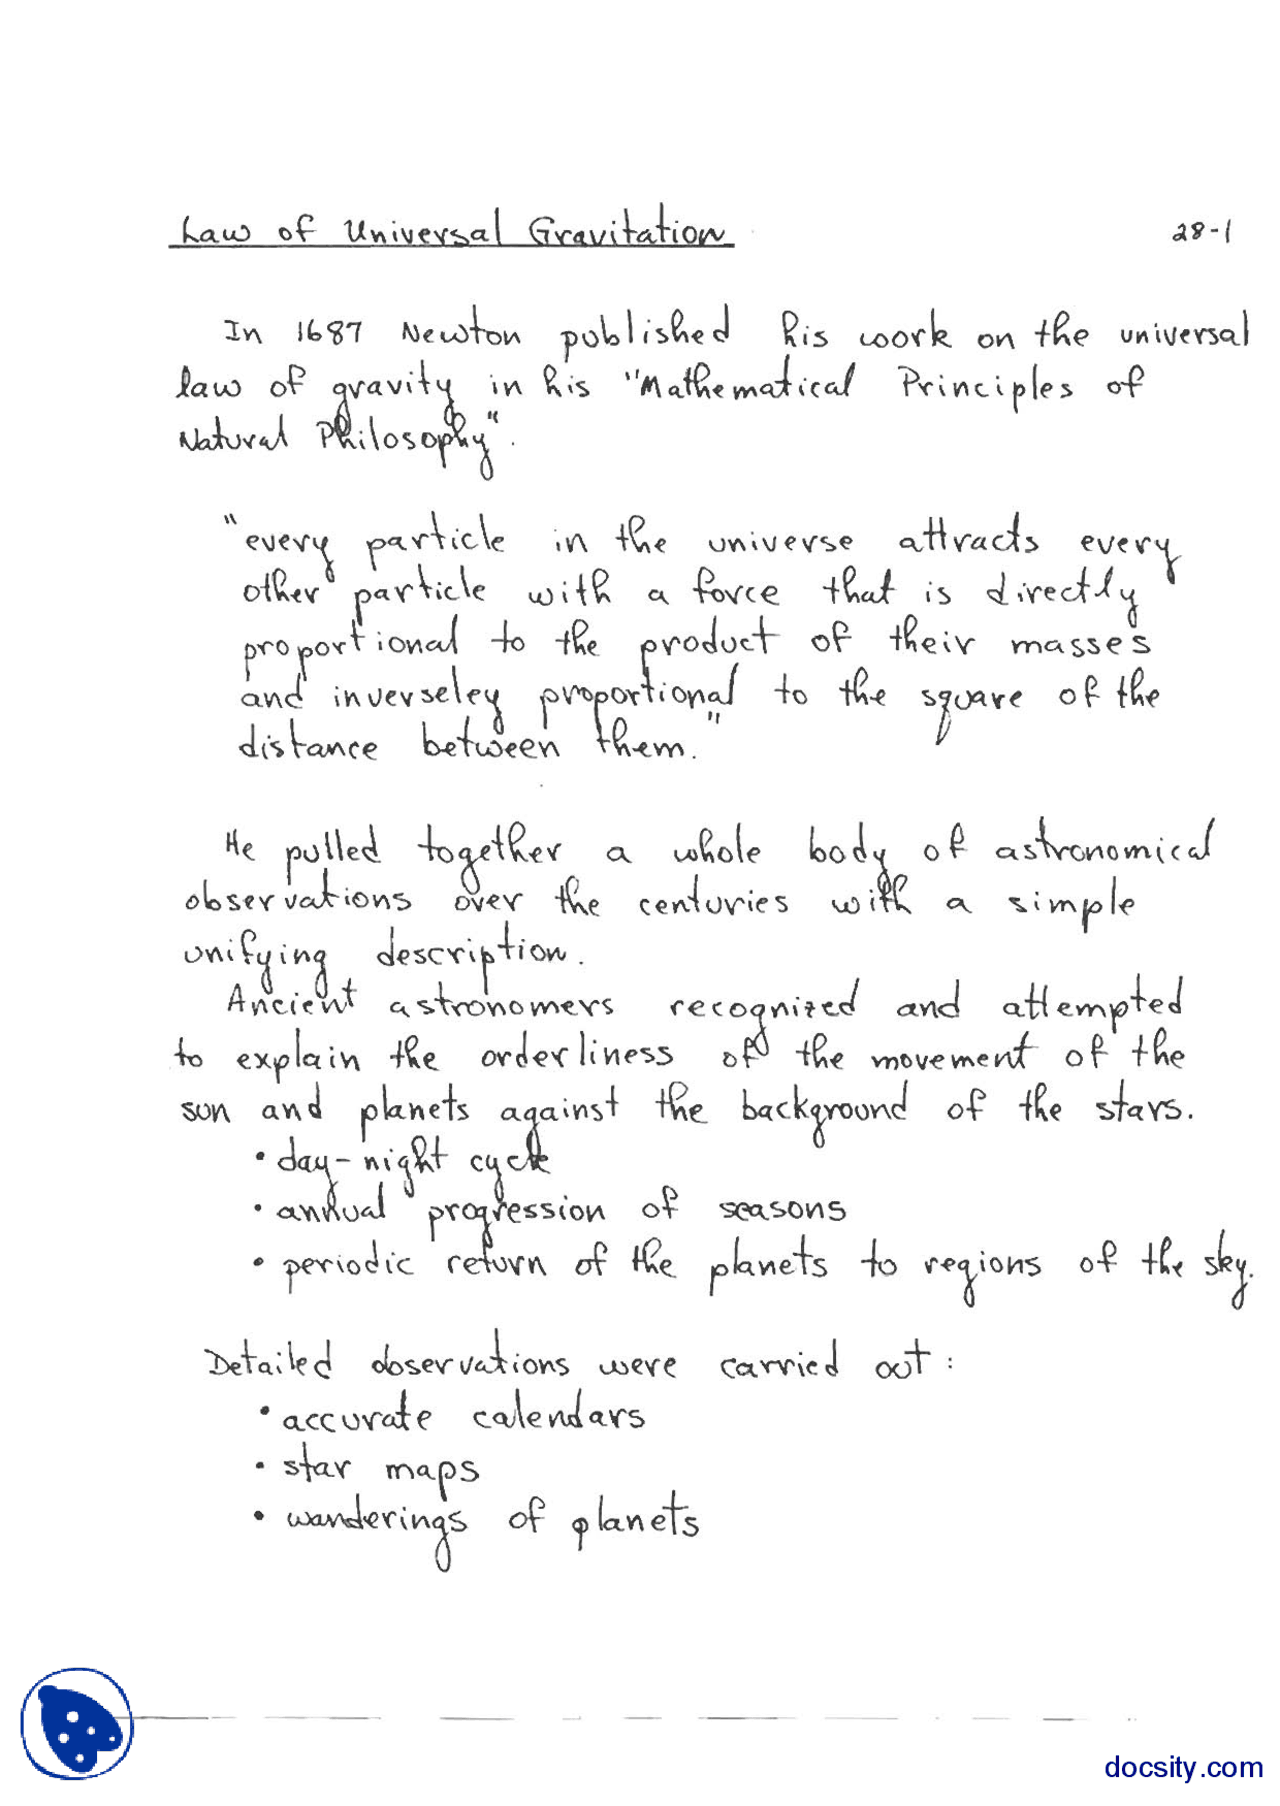 Law of Universal Gravitation 28-1
In 1687 Newton published his work on the universal
law of gravity in his "Mathematical Principles of
Natural Philosophy".
"every particle in the universe attracts every
other particle with a force that is directly
proportional to the product of their masses
and inverseley proportional to the square of the
distance between them."
He pulled together a whole body of astronomical
observations over the centuries with a simple
unifying description.
Ancient astronomers recognized and attempted
to explain the orderliness of the movement of the
sun and planets against the background of the stars.
• day-night cycle
• annual progression of seasons
• periodic return of the planets to regions of the sky.
Detailed observations were carried out:
• accurate calendars
• star maps
• wanderings of planets
docsity.com